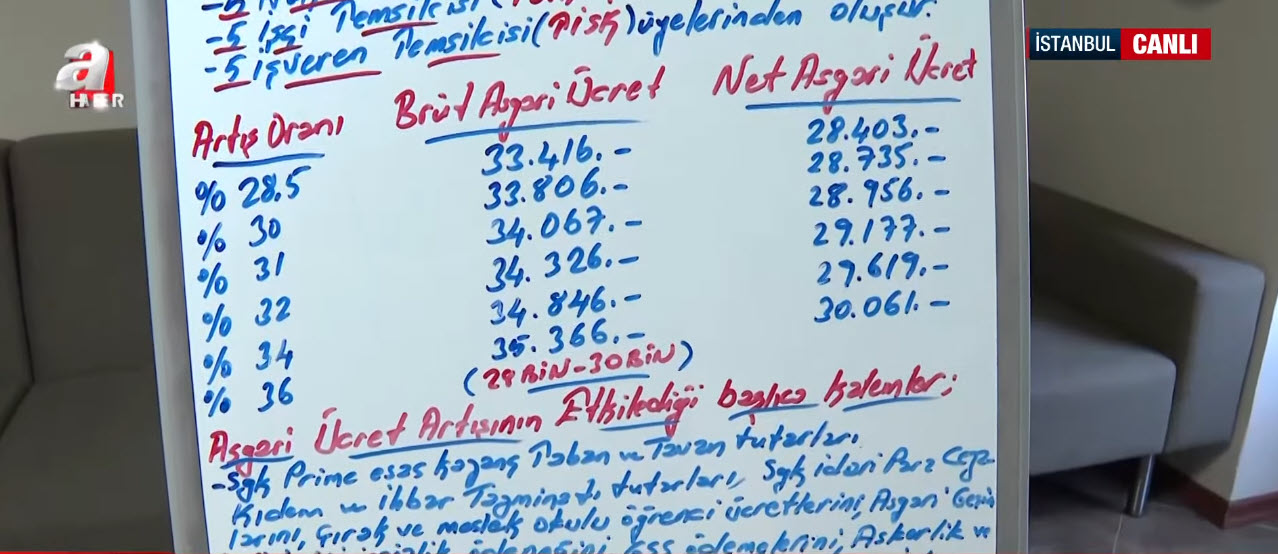 a
HABER
İSTANBUL CANLI
-5 İşçi Temsilcisi (
-5 İşveren Temsilcisi (TİSK) üyelerinden oluşur.
Artış Oranı Brüt Asgari Ücret Net Asgari Ücret
% 28.5 33.416.- 28.403.-
% 30 33.806.- 28.735.-
% 31 34.067.- 28.956.-
% 32 34.326.- 29.177.-
% 34 34.846.- 29.619.-
% 36 35.366.- 30.061.-
(28 BİN-30 BİN)
Asgari Ücret Artışının Etkilediği başlıca kalemler;
-Sgk Prime esas kazanç Taban ve Tavan tutarları,
Kıdem ve ihbar Tazminatı tutarları, Sgk idari Para Ceza
larını, Çırak ve meslek okulu öğrenci ücretlerini, Asgari Geçim
ödemelerini, Askerlik ve